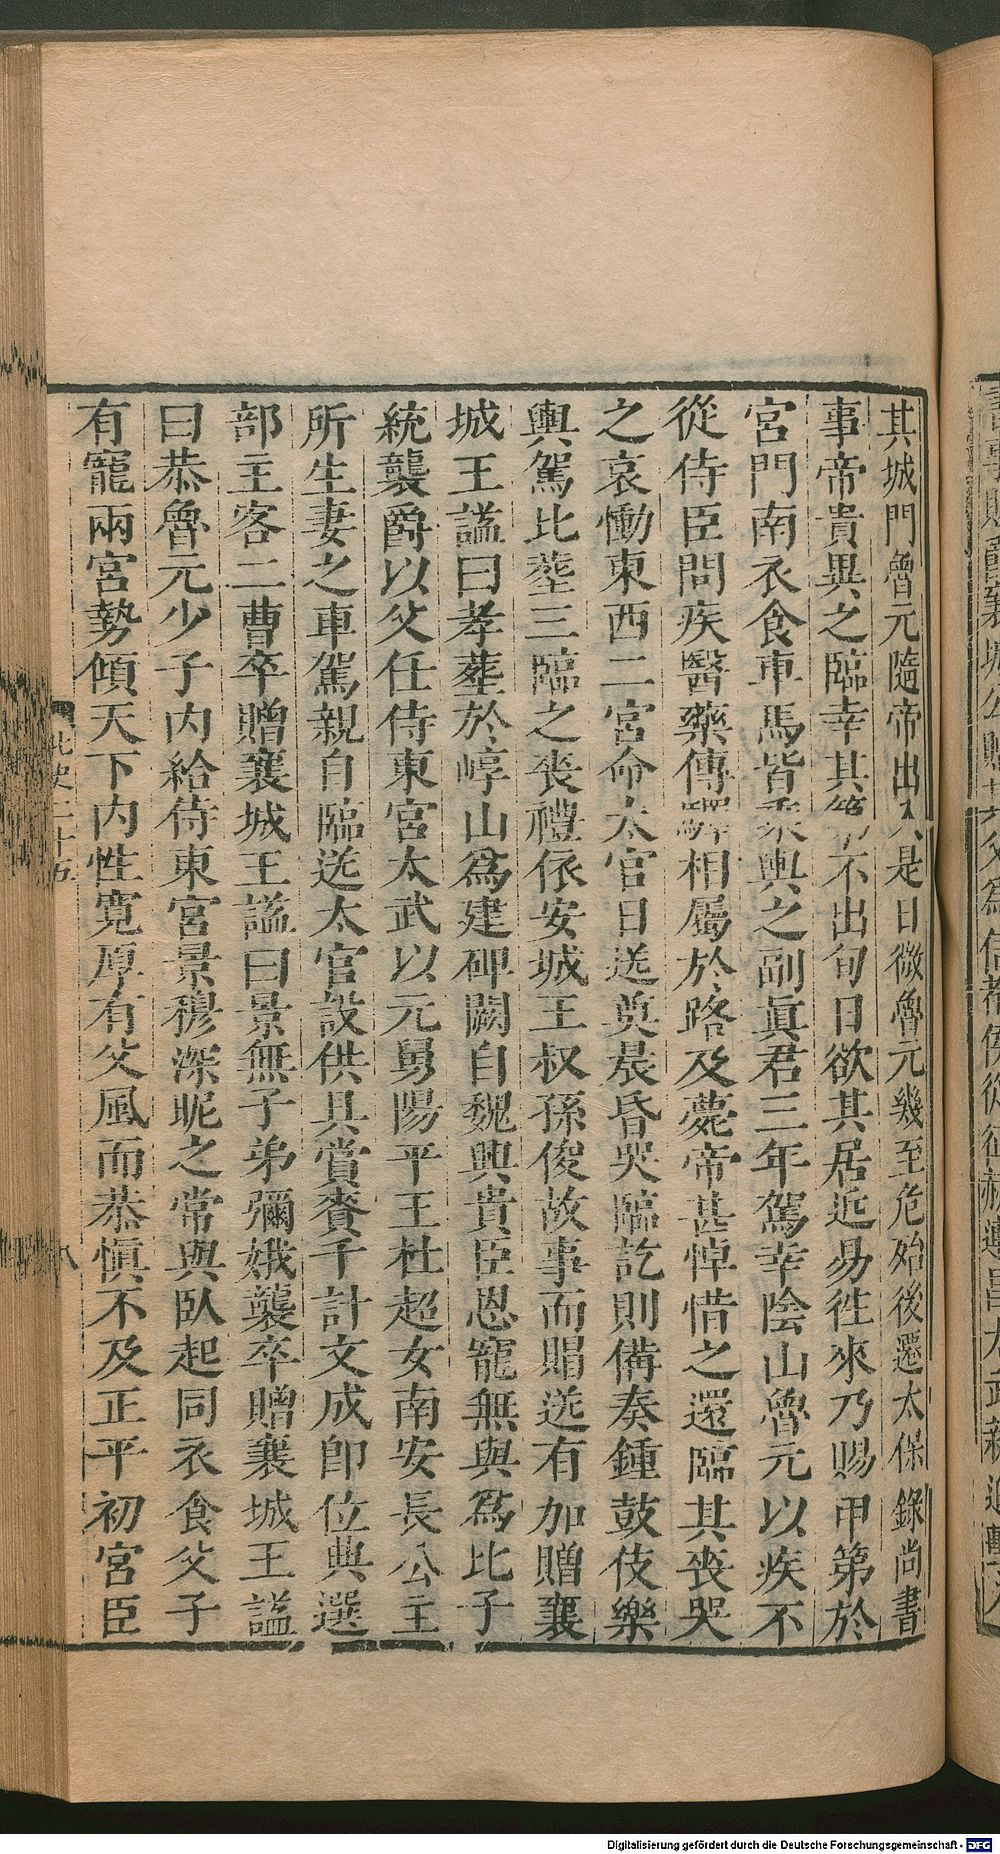 其城門魯元隨帝出入是日微魯元幾至危殆後遷太保錄尚書
事帝貴異之臨幸其第不出旬日欲其居近易徃來乃賜甲第於
宮門南衣食車馬皆乘輿之副眞君三年駕幸陰山魯元以疾不
從侍臣問疾醫藥傳驛相屬於路及薨帝甚悼惜之還臨其喪哭
之哀慟東西二宮命太官日送奠晨昏哭臨訖則備奏鍾鼓伎樂
輿駕比塟三臨之喪禮依安城王叔孫俊故事而賵送有加贈襄
城王謚曰孝塟於崞山爲建碑闕自魏興貴臣恩寵無與爲比子
統襲爵以父任侍東宮太武以元舅陽平王杜超女南安長公主
所生妻之車駕親自臨送太官設供具賞賚千計文成卽位典選
部主客二曹卒贈襄城王謚曰景無子弟彌娥襲卒贈襄城王謚
曰恭魯元少子內給侍東宮景穆深昵之常與臥起同衣食父子
有寵兩宮勢傾天下內性寬厚有父風而恭愼不及正平初宮臣
北史二十五
八
Digitalisierung gefördert durch die Deutsche Forschungsgemeinschaft - DFG